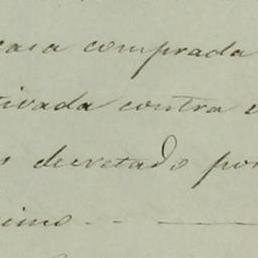 casa comprada
tivada contra e
s decretado por
simo